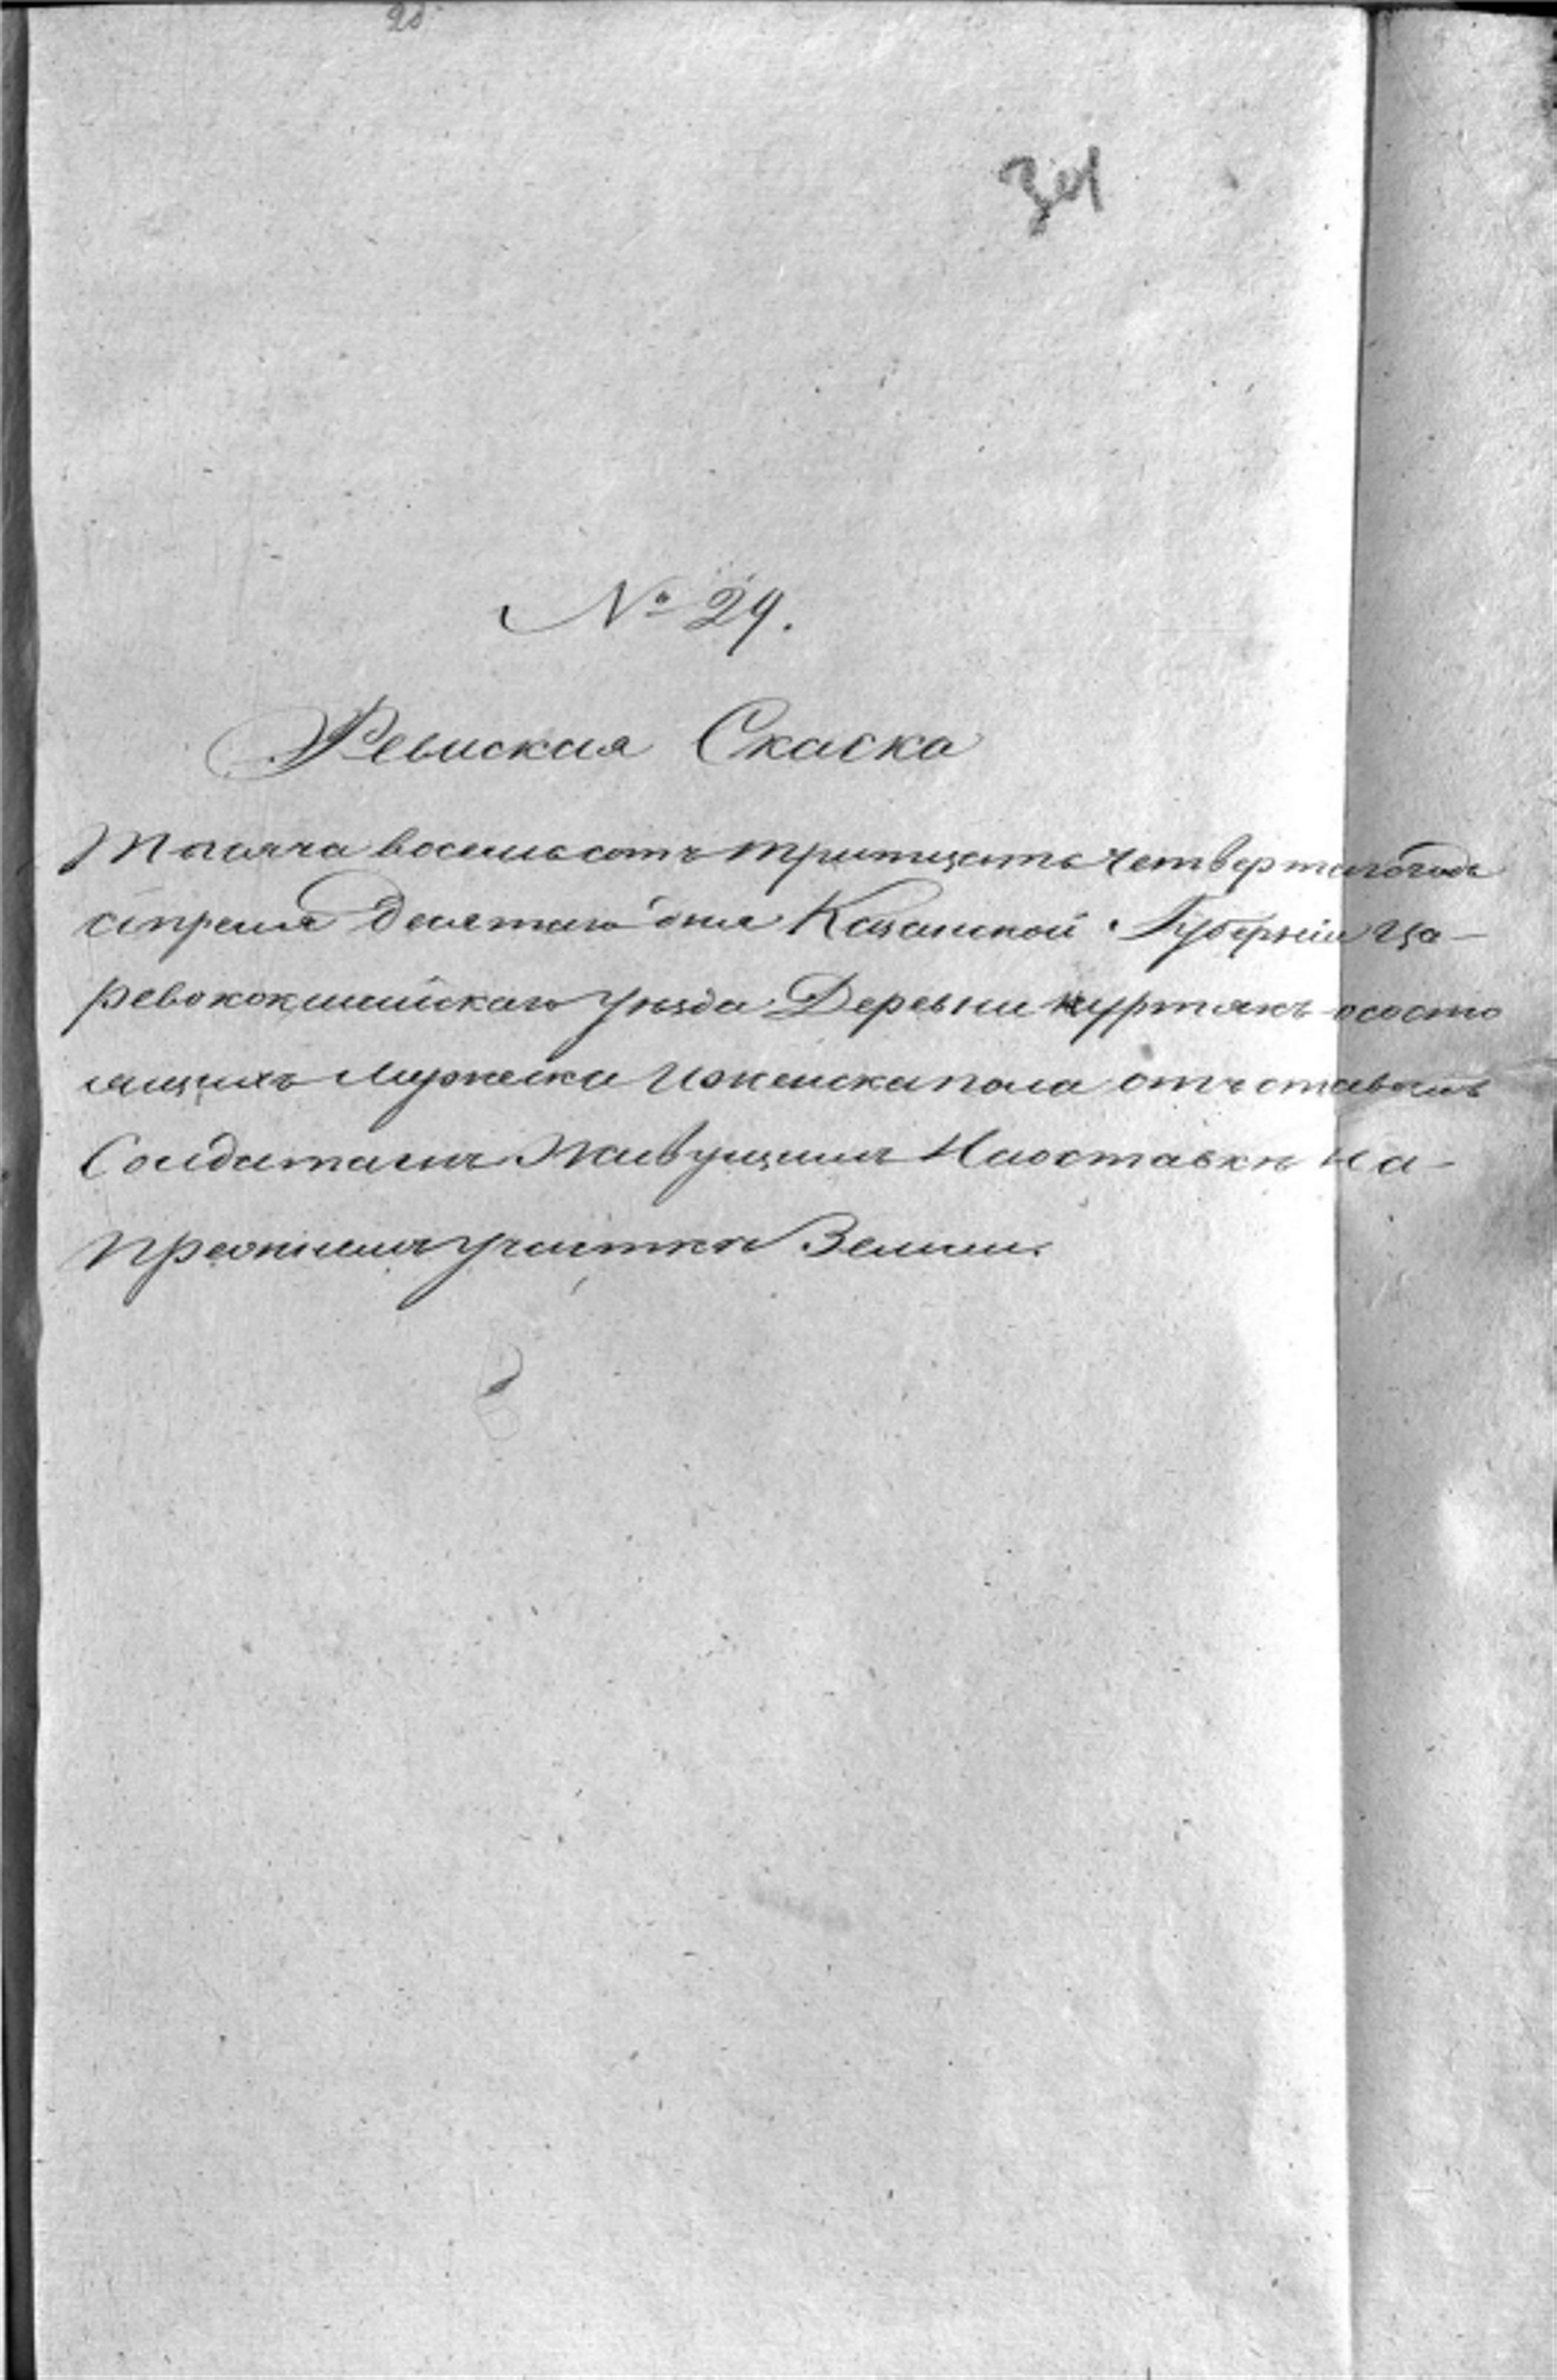 № 29.
Ревиская Скаска
Тысяча восемьсотъ тритцать четвертаго года
апреля десятаго дня Казанской Губерніи Ца-
ревококшайскаго уѣзда Деревни Куртякъ ососто
ящихъ мужеска ижениска пола отъставныхъ
Солдатахъ Живущихъ Наоставкѣ на-
прежнихъ участкѣ Земли.